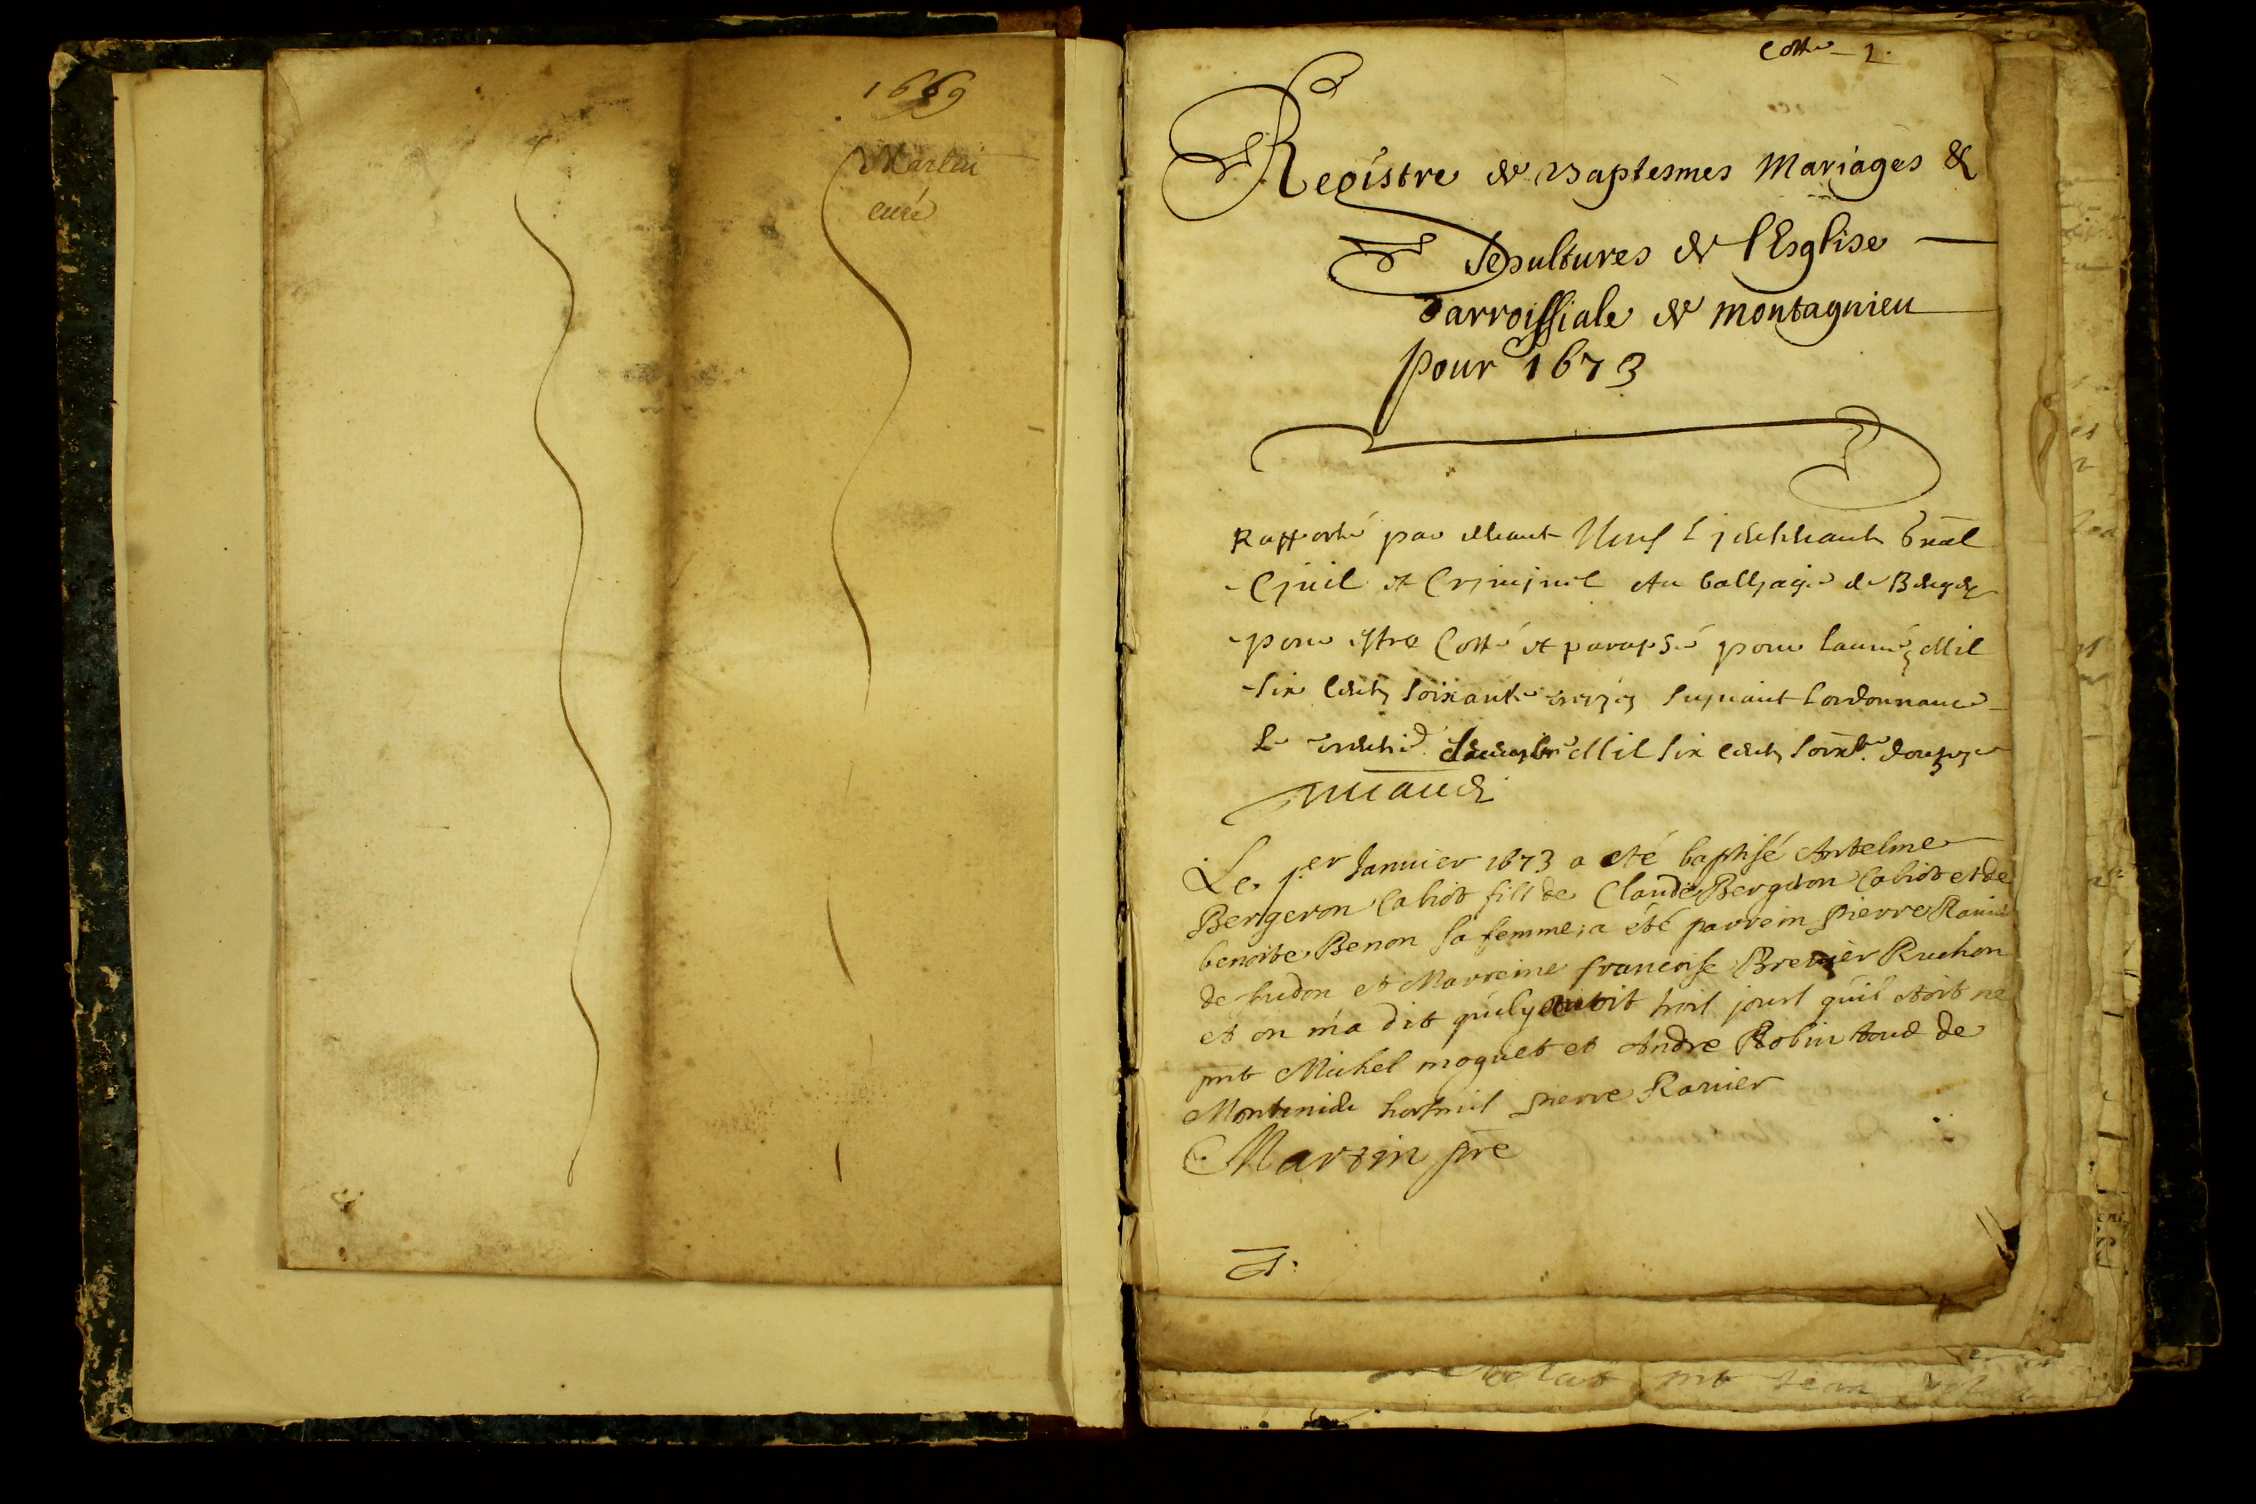 1669
Martin
curé
Cotte 1.
Registre de Baptesmes Mariages &
Sepultures de l'Esglise
Parroissiale de montagnieu
pour 1673
Rapporté par devant Nous Lieutenant gnal
Civil et Criminel Au balliage de Bugey
pour estre Cotté et paraphé pour l'année Mil
six cents soixante treize suyvant l'ordonnance
Le decembre Mil six cents soixte douze
Le 1.er Januier 1673 a eté baptisé Antelme
Bergeron Cabiot fill de Claude Bergeron Cabiot et de
benoite Benon sa femme, a été parrein pierre Rauier
de et Marreine francoise Brevier Ruchon
et on m'a dit qu'il y avoit trois jours qu'il etoit ne
pnt Michel moguet et Andre Robin tous de
pierre Rauier
Martin pre